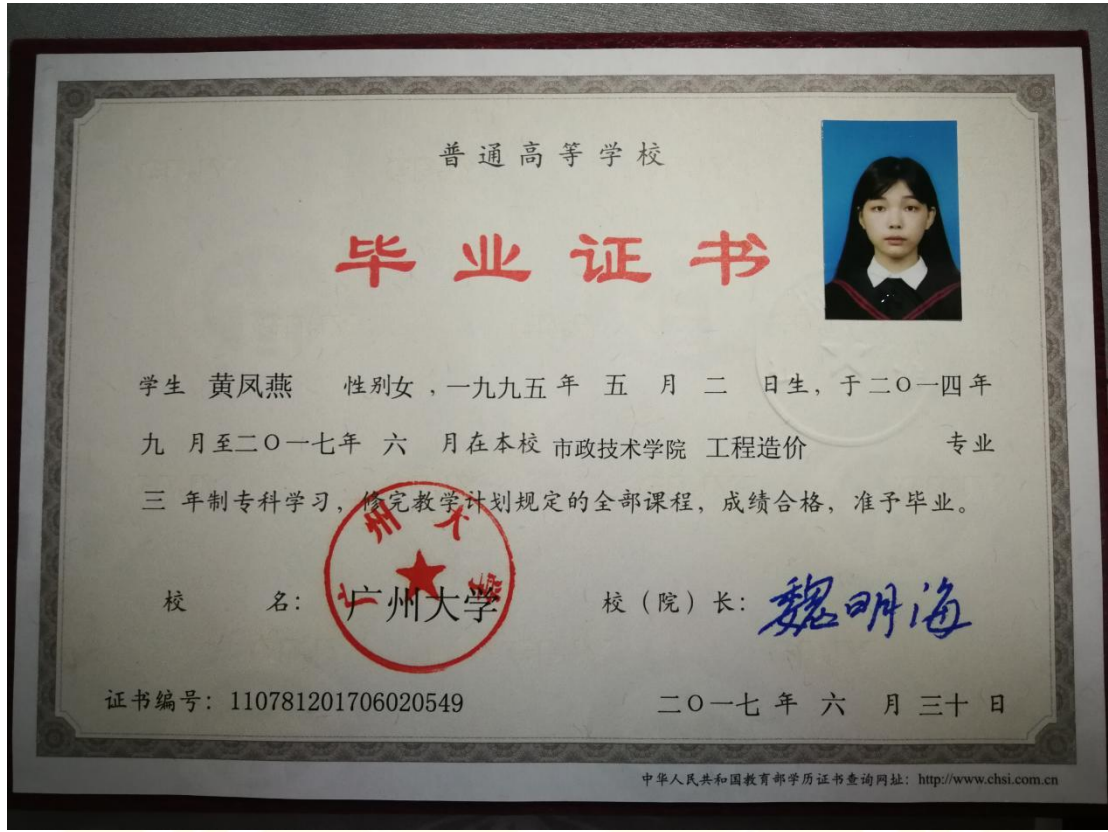 普通高等学校
毕业证书
学生 黄凤燕 性别女，一九九五年 五 月 二 日生，于二〇一四年
九 月至二〇一七年 六 月在本校 市政技术学院 工程造价 专业
三 年制专科学习，修完教学计划规定的全部课程，成绩合格，准予毕业。
广州大学
校 名： 广州大学 校（院）长： 魏明海
证书编号：110781201706020549 二〇一七年 六 月 三十 日
中华人民共和国教育部学历证书查询网址：http://www.chsi.com.cn